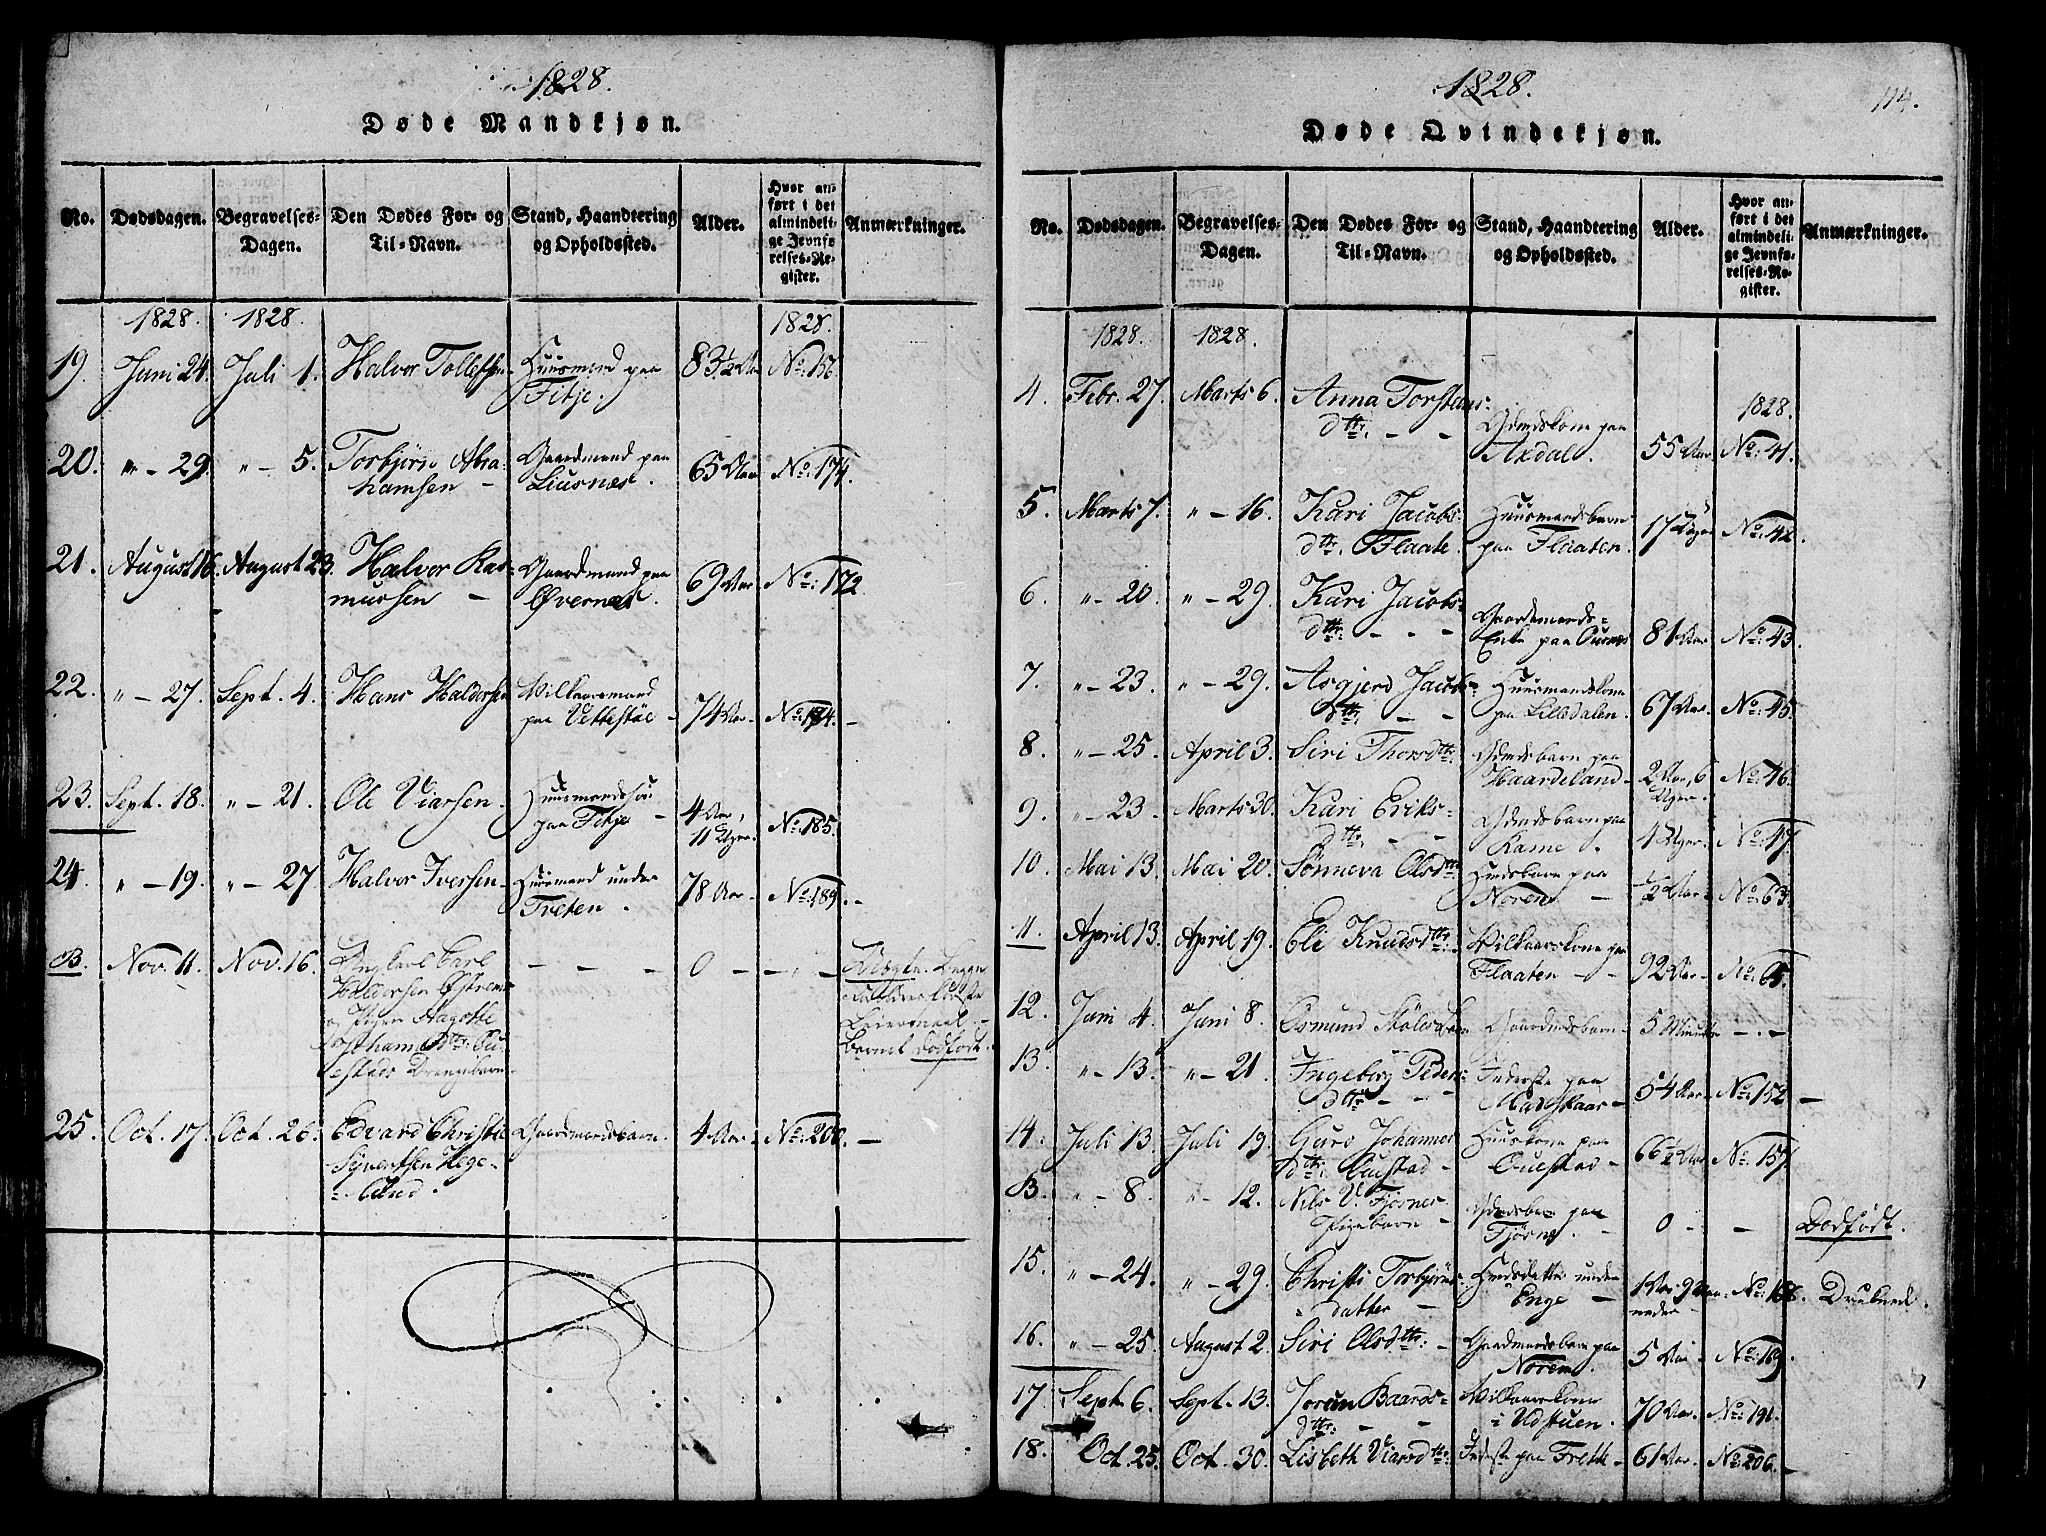 1828.
Døde Mandkjøn.
No. Dødsdagen. Begravelses-Dagen. Den Dødes For- og Til-Navn. Stand, Haandtering og Opholdssted. Alder. Hvor anført i det almindelige Jevnførelses-Register. Anmærkninger.
1828. 1828. 1828.
19. Juni 24. Juli 1. Halvor Tollefsen Huusmand paa Fitje. 83½ Aar No: 156.
20. " - 29. " - 5. Torbjørn Abrahamsen - Gaardmand paa Liusnæs. 65 Aar No: 174.
21. August 16. August 23. Halvor Rasmussen - Gaardmand paa Øvernæs. 69 Aar No: 172.
22. " - 27. Sept. 4. Hans Haldorsen Vilkaarsmand paa Vettestøl - 74 Aar. No: 184. -
23. Sept. 18. " - 21. Ole Viarsen. Huusmandssøn paa Fitje - 4 Aar, 11 Uger. No: 185.
24. " - 19. " - 27 Halvor Iversen - Huusmand under Tveten. 78 Aar - No: 189. -
B. Nov. 11. Nov. 16. Ungkarl Carl Haldorsen Østrem og Pigen Aagotte Johannesdtr: Ouestads Drengebarn - - - - 0 - - " - Begge Leiermaal - Barnet Dødfødt.
25. Oct. 17. Oct. 26. Edvard Christi Sivertsen Hegelund. Gaardmandsbarn. 4 Aar - No: 200. -
1828.
114.
Døde Qvindekjøn.
No. Dødsdagen. Begravelses-Dagen. Den Dødes For- og Til-Navn. Stand, Haandtering og Opholdssted. Alder. Hvor anført i det almindelige Jevnførelses-Register. Anmærkninger.
1828. 1828. 1828.
4. Febr. 27. Marts 6. Anna Torstensdtr: - - Gdmdskone paa Axdal. 55 Aar No: 41.
5. Marts 7. " - 16. Kari Jacobsdtr: Flaate. Huusmandsbarn paa Flaaten. 17 Uger No: 42.
6. " - 20. " - 29. Kari Jacobsdtr: - - - Gaardmands-Enke paa Ousnes 81 Aar No: 43.
7. " - 23. " - 29. Asgjerd Jacobsdtr: - - Huusmandskone paa Lilledalen. 67 Aar. No: 45.
8. " - 25. April 3. Siri Thorsdtr: Gdmdsbarn paa Haardeland - 2 Aar, 6 Uger. No: 46.
9. " - 23. Marts 30. Kari Eriksdtr: - - Gdmdsbarn paa Rame. 4 Uger. No: 47
10. Mai 13. Mai 20. Sønneva Olsdtr: Hmdsbarn paa Norem - ½ Aar - No: 63.
11. April 13. April 19. Eli Knudsdtr: Vilkaarskone paa Flaaten - - 92 Aar - No: 65.
12. Juni 4. Juni 8. Osmund Gaardmdsbarn - 5 Minutter - . -
13. " - 13. " - 21. Ingeborg Pedersdtr - - - Inderste paa Madskaar - 64 Aar - No: 152 -
14. Juli 13. Juli 19. Guro Johannesdtr: Ouestad - Huuskone paa Ouestad - 66½ Aar No: 157.
B. " - 8. " - 12. Nils V. Fjørnes Pigebarn - Gdmdsbarn paa Fjørne. - 0 - - Dødfødt.
15. " - 24. " - 29. Christi Torbjørnsdatter - Hmdsdatter under Enge - 1 Aar 9 Maaneder - No: 168. Druknet.
16. " - 25. August 2. Siri Olsdtr: - Gaardmandsbarn paa Norem. 5 Aar - No: 169.
17. Sept. 6. Sept. 13. Jorun Baardsdtr: - - Vilkaarskone i Udstuen. 70 Aar. No: 191.
18. Oct. 25. Oct. 30. Lisbeth Viarsdtr: Inderst paa Frette - 61 Aar - No: 206. -